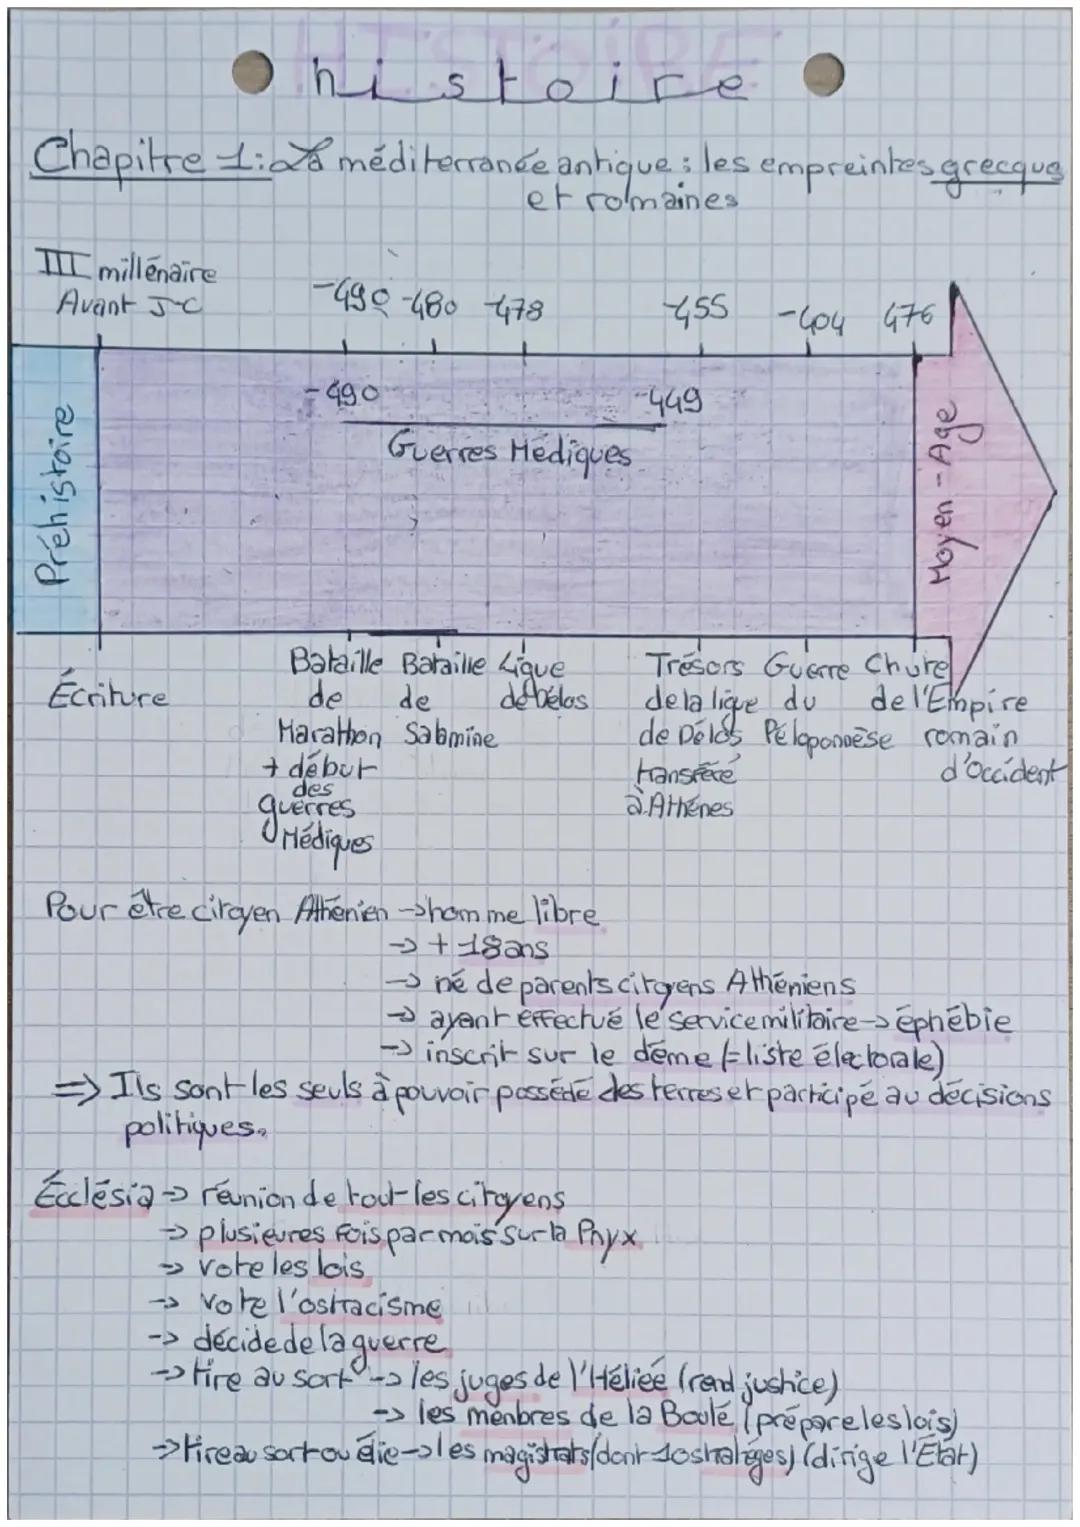 HISTOIRE
histoire
Chapitre 1: La méditerranée antique : les empreintes grecque
et romaines
III millénaire
Avant J-C
-490 -480 -478 -455 -404 476
Préhistoire
-490 -449
Guerres Médiques
Moyen-Age
Écriture
Bataille
de
Marathon
+ début
des
guerres
Médiques
Bataille
de
Salamine
Ligue
de Délos
Trésors
de la ligue
de Délos
transféré
à Athénes
Guerre
du
Péloponnèse
Chute
de l'Empire
romain
d'Occident
Pour être citoyen Athénien -> homme libre
-> + 18 ans
-> né de parents citoyens Athéniens
-> ayant effectué le service militaire -> éphébie
-> inscrit sur le dème (= liste électorale)
=> Ils sont les seuls à pouvoir possédé des terres et participé au décisions
politiques.
Écclésia -> réunion de tout les citoyens
-> plusieures fois par mois sur la Pnyx
-> vote les lois
-> vote l'ostracisme
-> décide de la guerre
-> tire au sort -> les juges de l'Héliée (rend justice)
-> les menbres de la Boulé (prépare les lois)
-> tire au sort ou élie -> les magistrats (dont 10 stratéges) (dirige l'État)